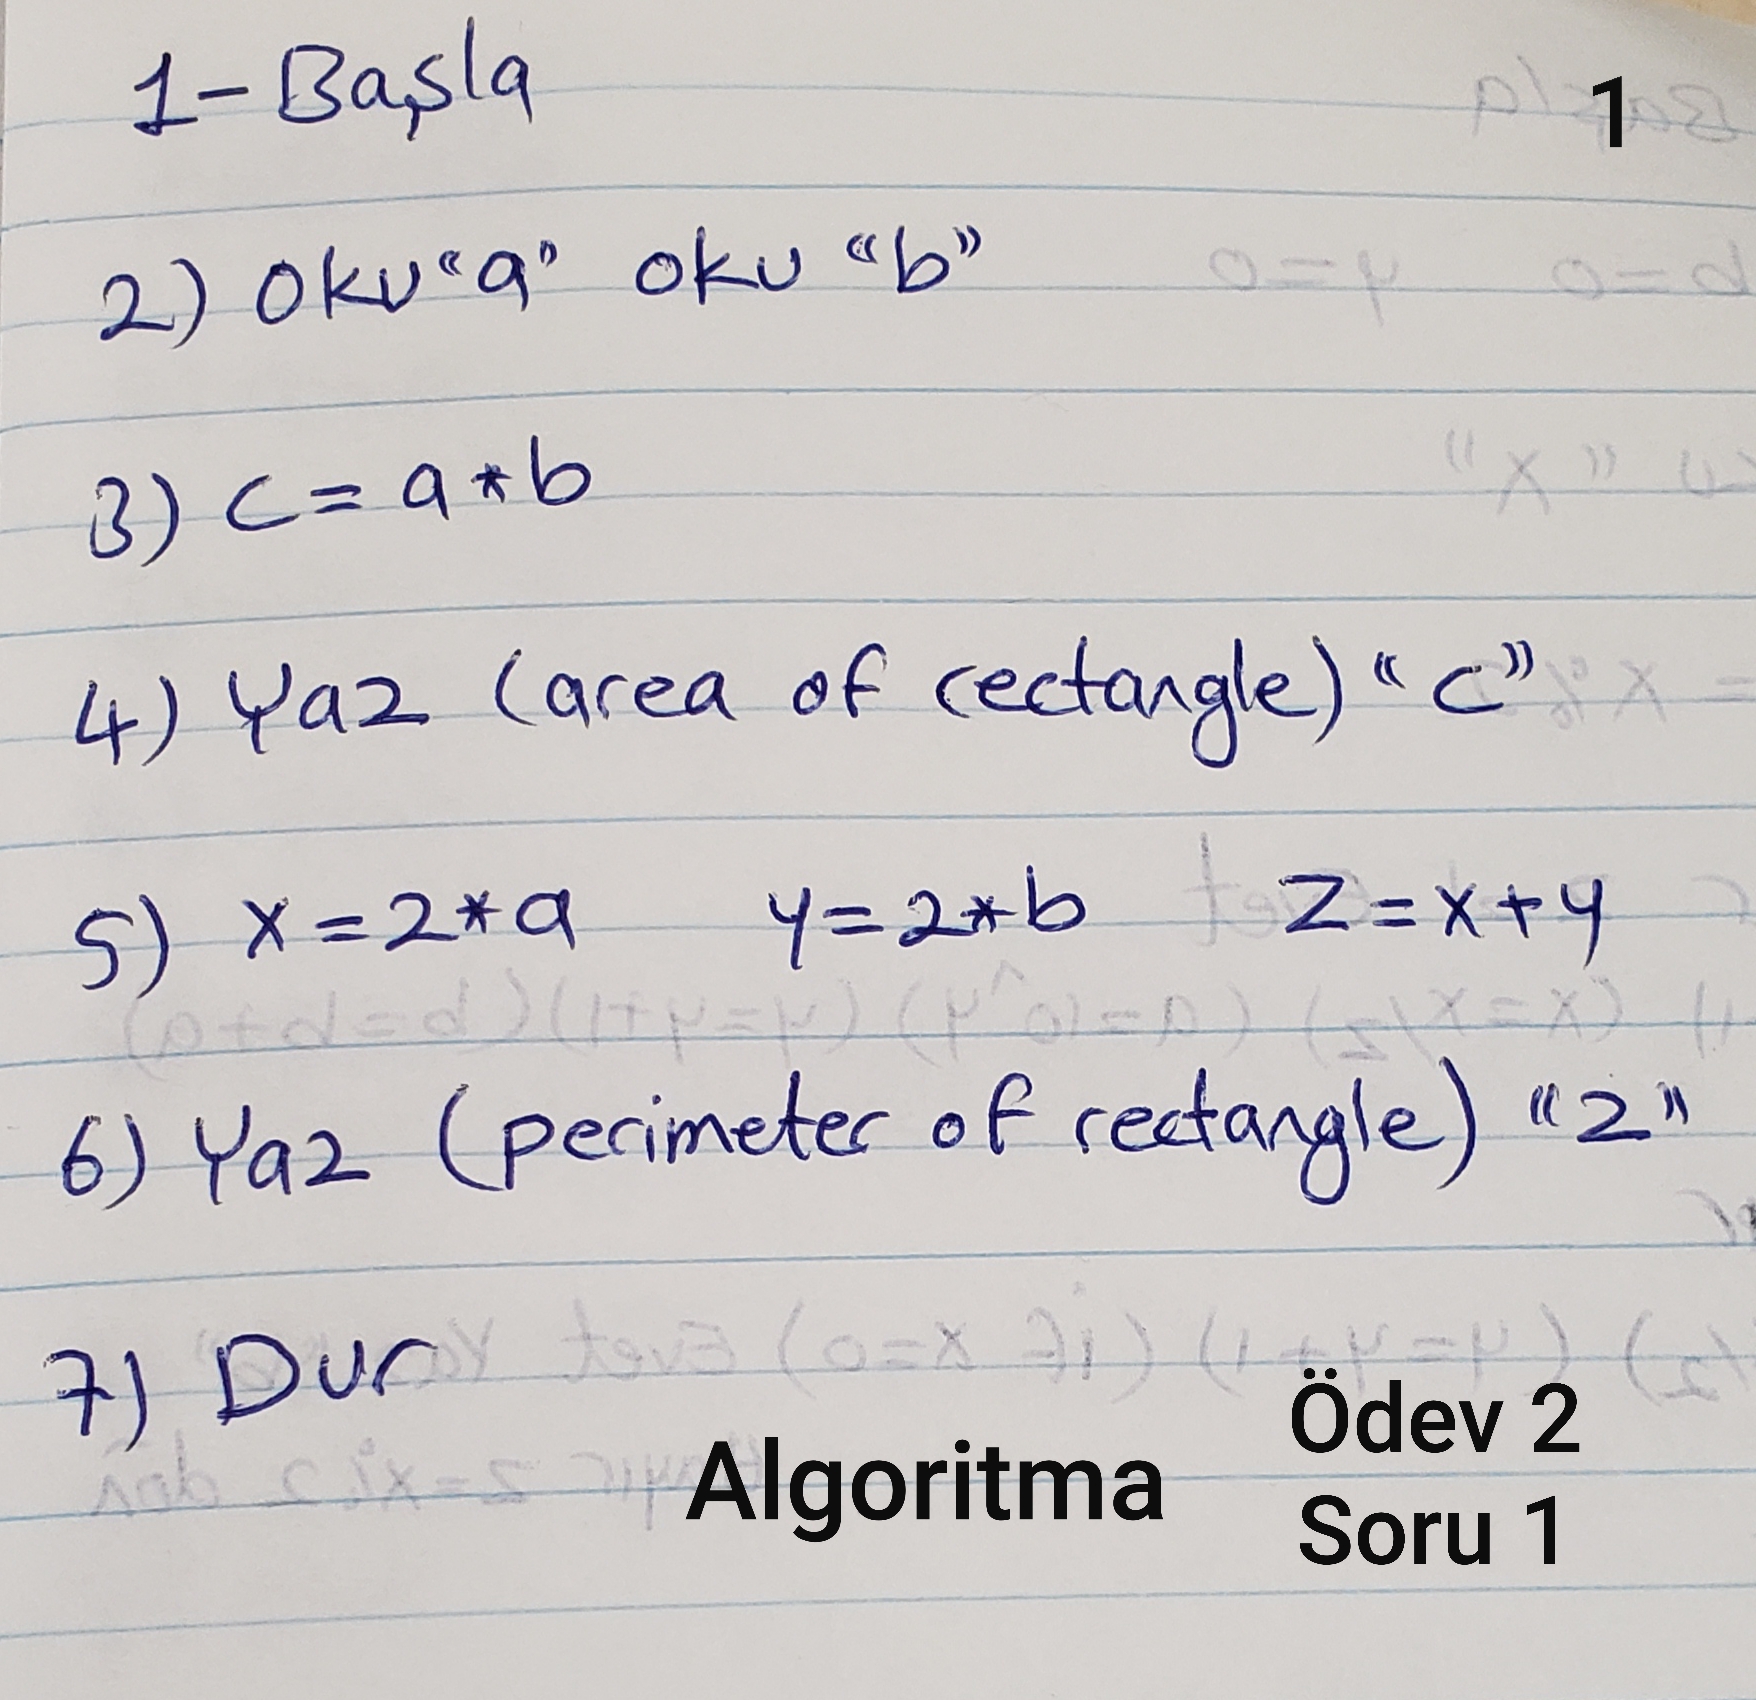 1- Başla
1
2) Oku "a" oku "b"
3) c = a * b
4) Yaz (area of rectangle) "c"
5) x = 2 * a y = 2 * b z = x + y
6) Yaz (perimeter of rectangle) "z"
7) Dur
Algoritma
Ödev 2
Soru 1